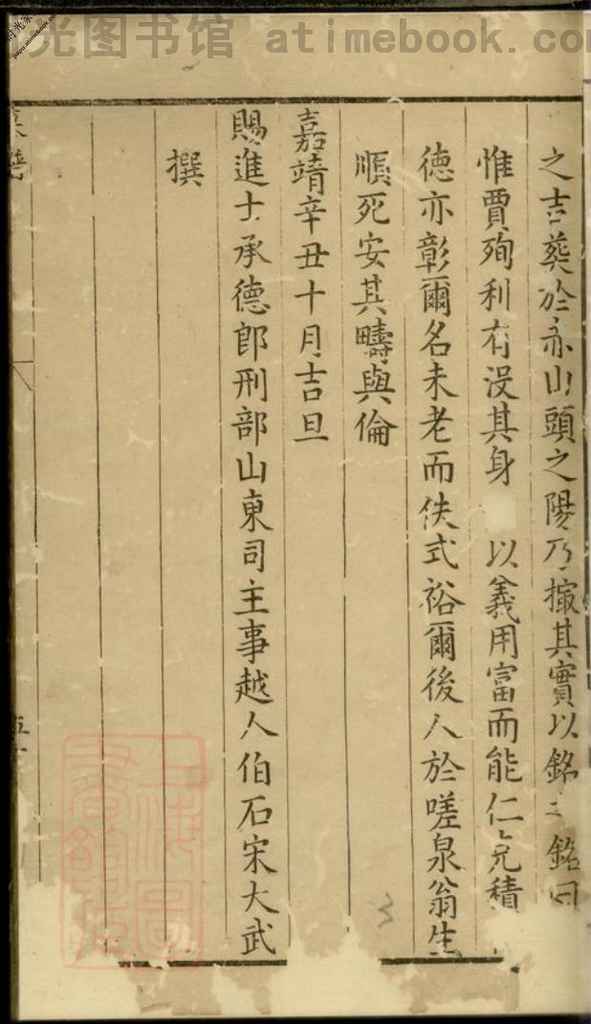 光图书馆 atimebook.co
之吉葬於亦山頭之陽乃撮其實以銘之銘曰
惟賈殉利有没其身 以義用富而能仁允積
德亦彰爾名未老而佚式裕爾後人於嗟泉翁生
順死安其疇與倫
嘉靖辛丑十月吉旦
賜進士承德郎刑部山東司主事越人伯石宋大武
撰